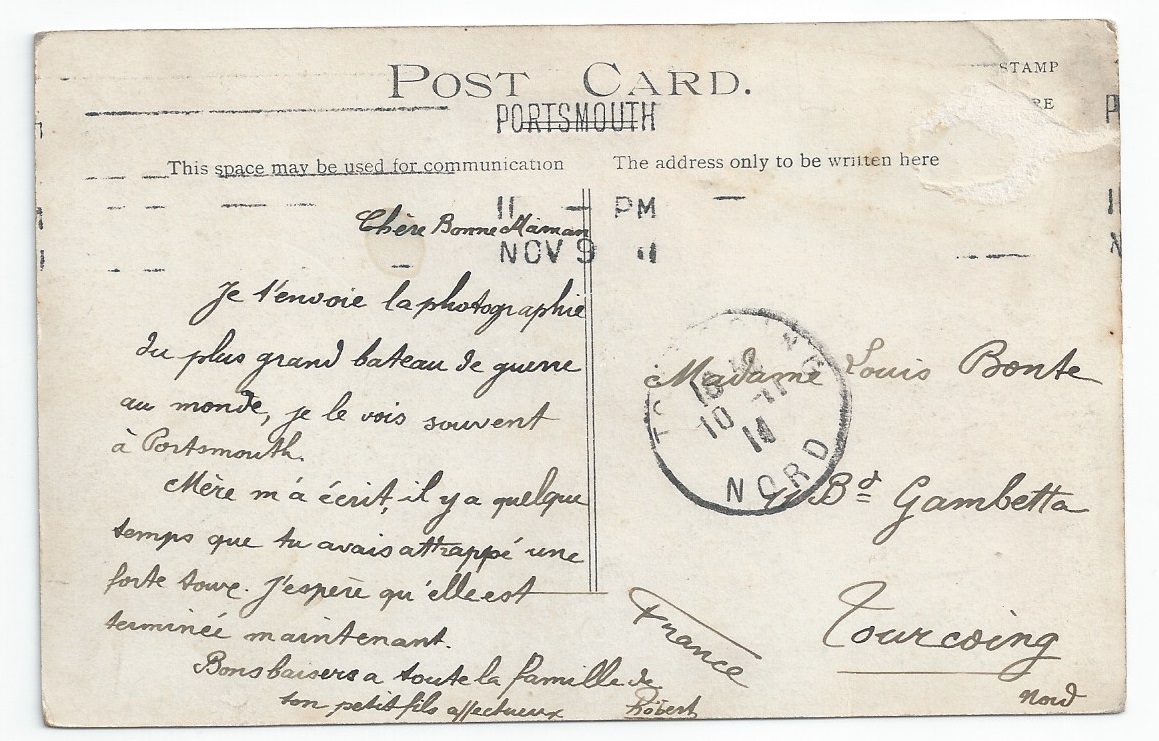 POST CARD.
STAMP
RE
PORTSMOUTH
This space may be used for communication
The address only to be written here
11 — PM
NOV 9 11
Chère Bonne Maman
Je t'envoie la photographie
du plus grand bateau de guerre
au monde, je le vois souvent
à Portsmouth.
Mère m'a écrit, il y a quelque
temps que tu avais attrappé une
forte toux. J'espère qu'elle est
terminée maintenant.
Bons baisers a toute la famille de
ton petit fils affectueux Robert
TOURCOING
18
10 -11
NORD
Madame Louis Bonte
Bd Gambetta
Tourcoing
Nord
France